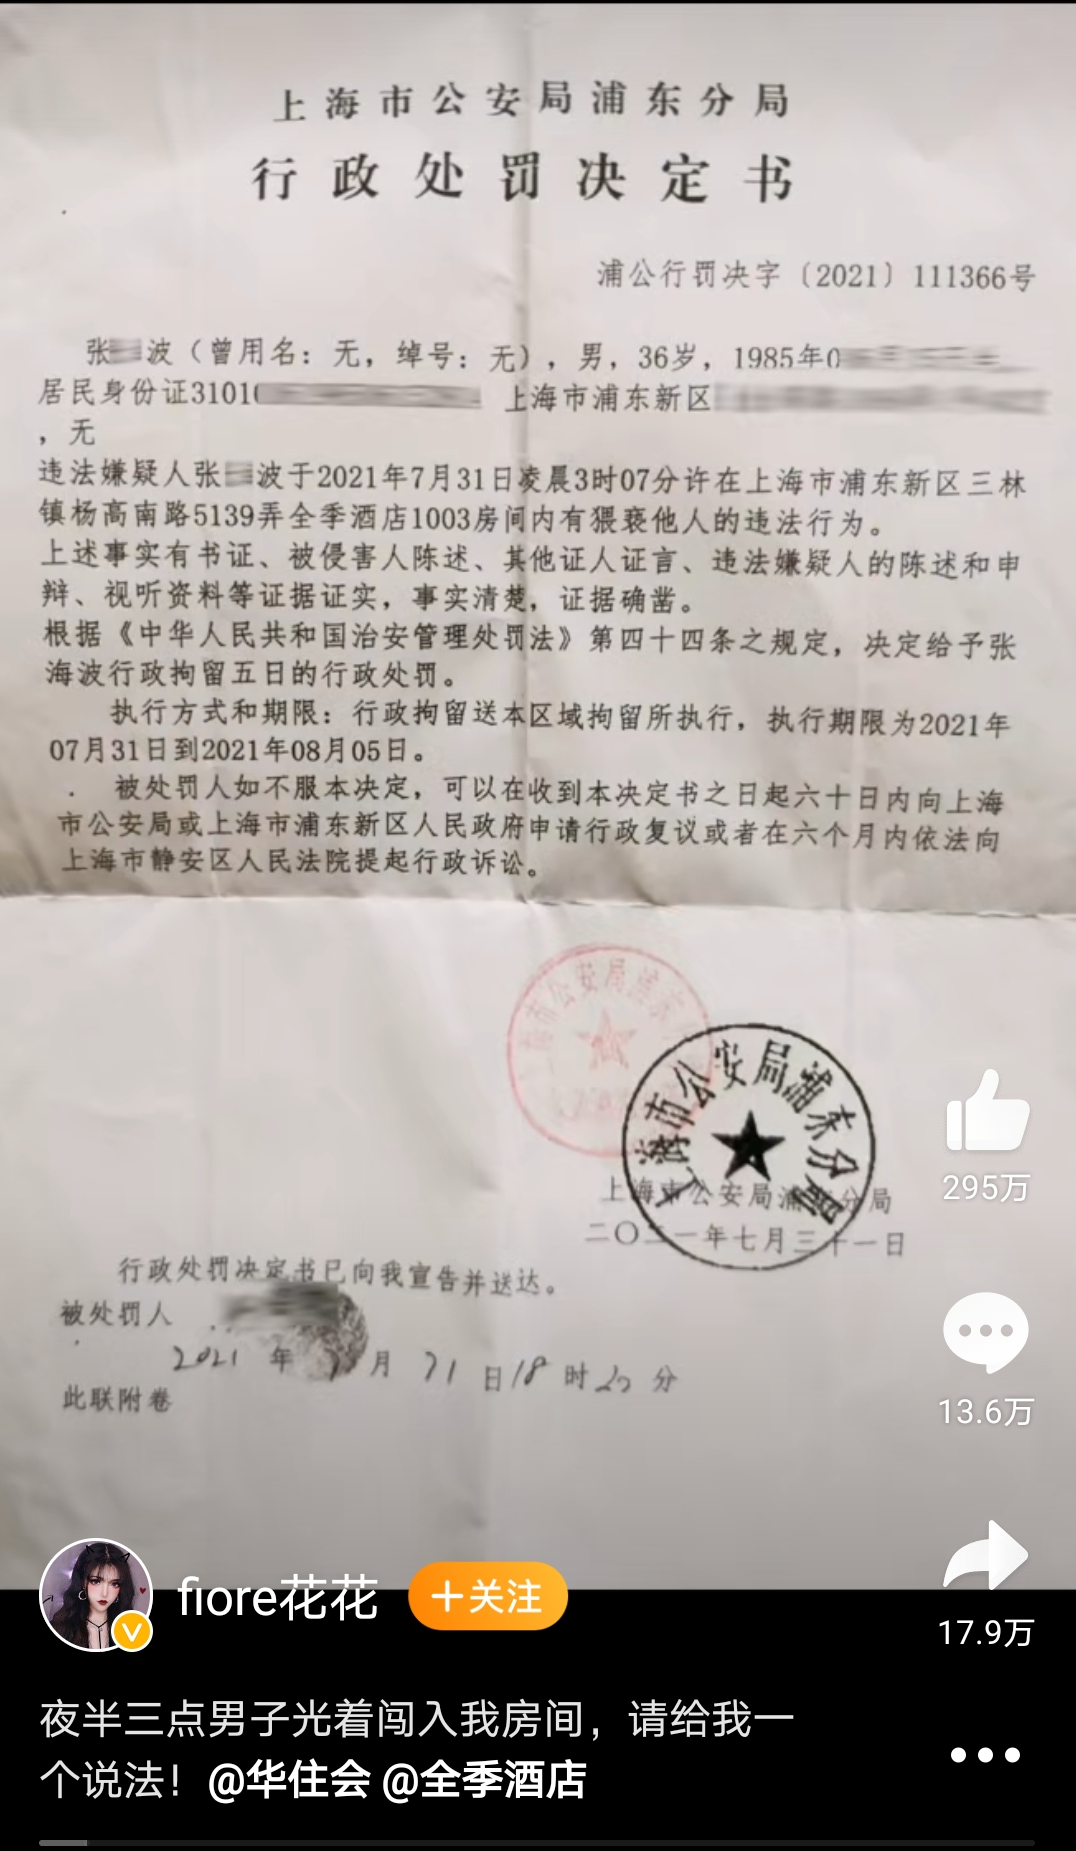 上海市公安局浦东分局
行政处罚决定书
浦公行罚决字〔2021〕111366号
张 波（曾用名：无，绰号：无），男，36岁，1985年0
居民身份证3101 上海市浦东新区
，无
违法嫌疑人张 波于2021年7月31日凌晨3时07分许在上海市浦东新区三林
镇杨高南路5139弄全季酒店1003房间内有猥亵他人的违法行为。
上述事实有书证、被侵害人陈述、其他证人证言、违法嫌疑人的陈述和申
辩、视听资料等证据证实，事实清楚，证据确凿。
根据《中华人民共和国治安管理处罚法》第四十四条之规定，决定给予张
海波行政拘留五日的行政处罚。
执行方式和期限：行政拘留送本区域拘留所执行，执行期限为2021年
07月31日到2021年08月05日。
被处罚人如不服本决定，可以在收到本决定书之日起六十日内向上海
市公安局或上海市浦东新区人民政府申请行政复议或者在六个月内依法向
上海市静安区人民法院提起行政诉讼。
上海市公安局浦东分局
上海市公安局浦东分局
上海市公安局浦东分局
二〇二一年七月三十一日
行政处罚决定书已向我宣告并送达。
被处罚人
2021 年 月 31 日 18 时 20 分
此联附卷
295万
13.6万
17.9万
fiore花花
+关注
夜半三点男子光着闯入我房间，请给我一
个说法！@华住会 @全季酒店